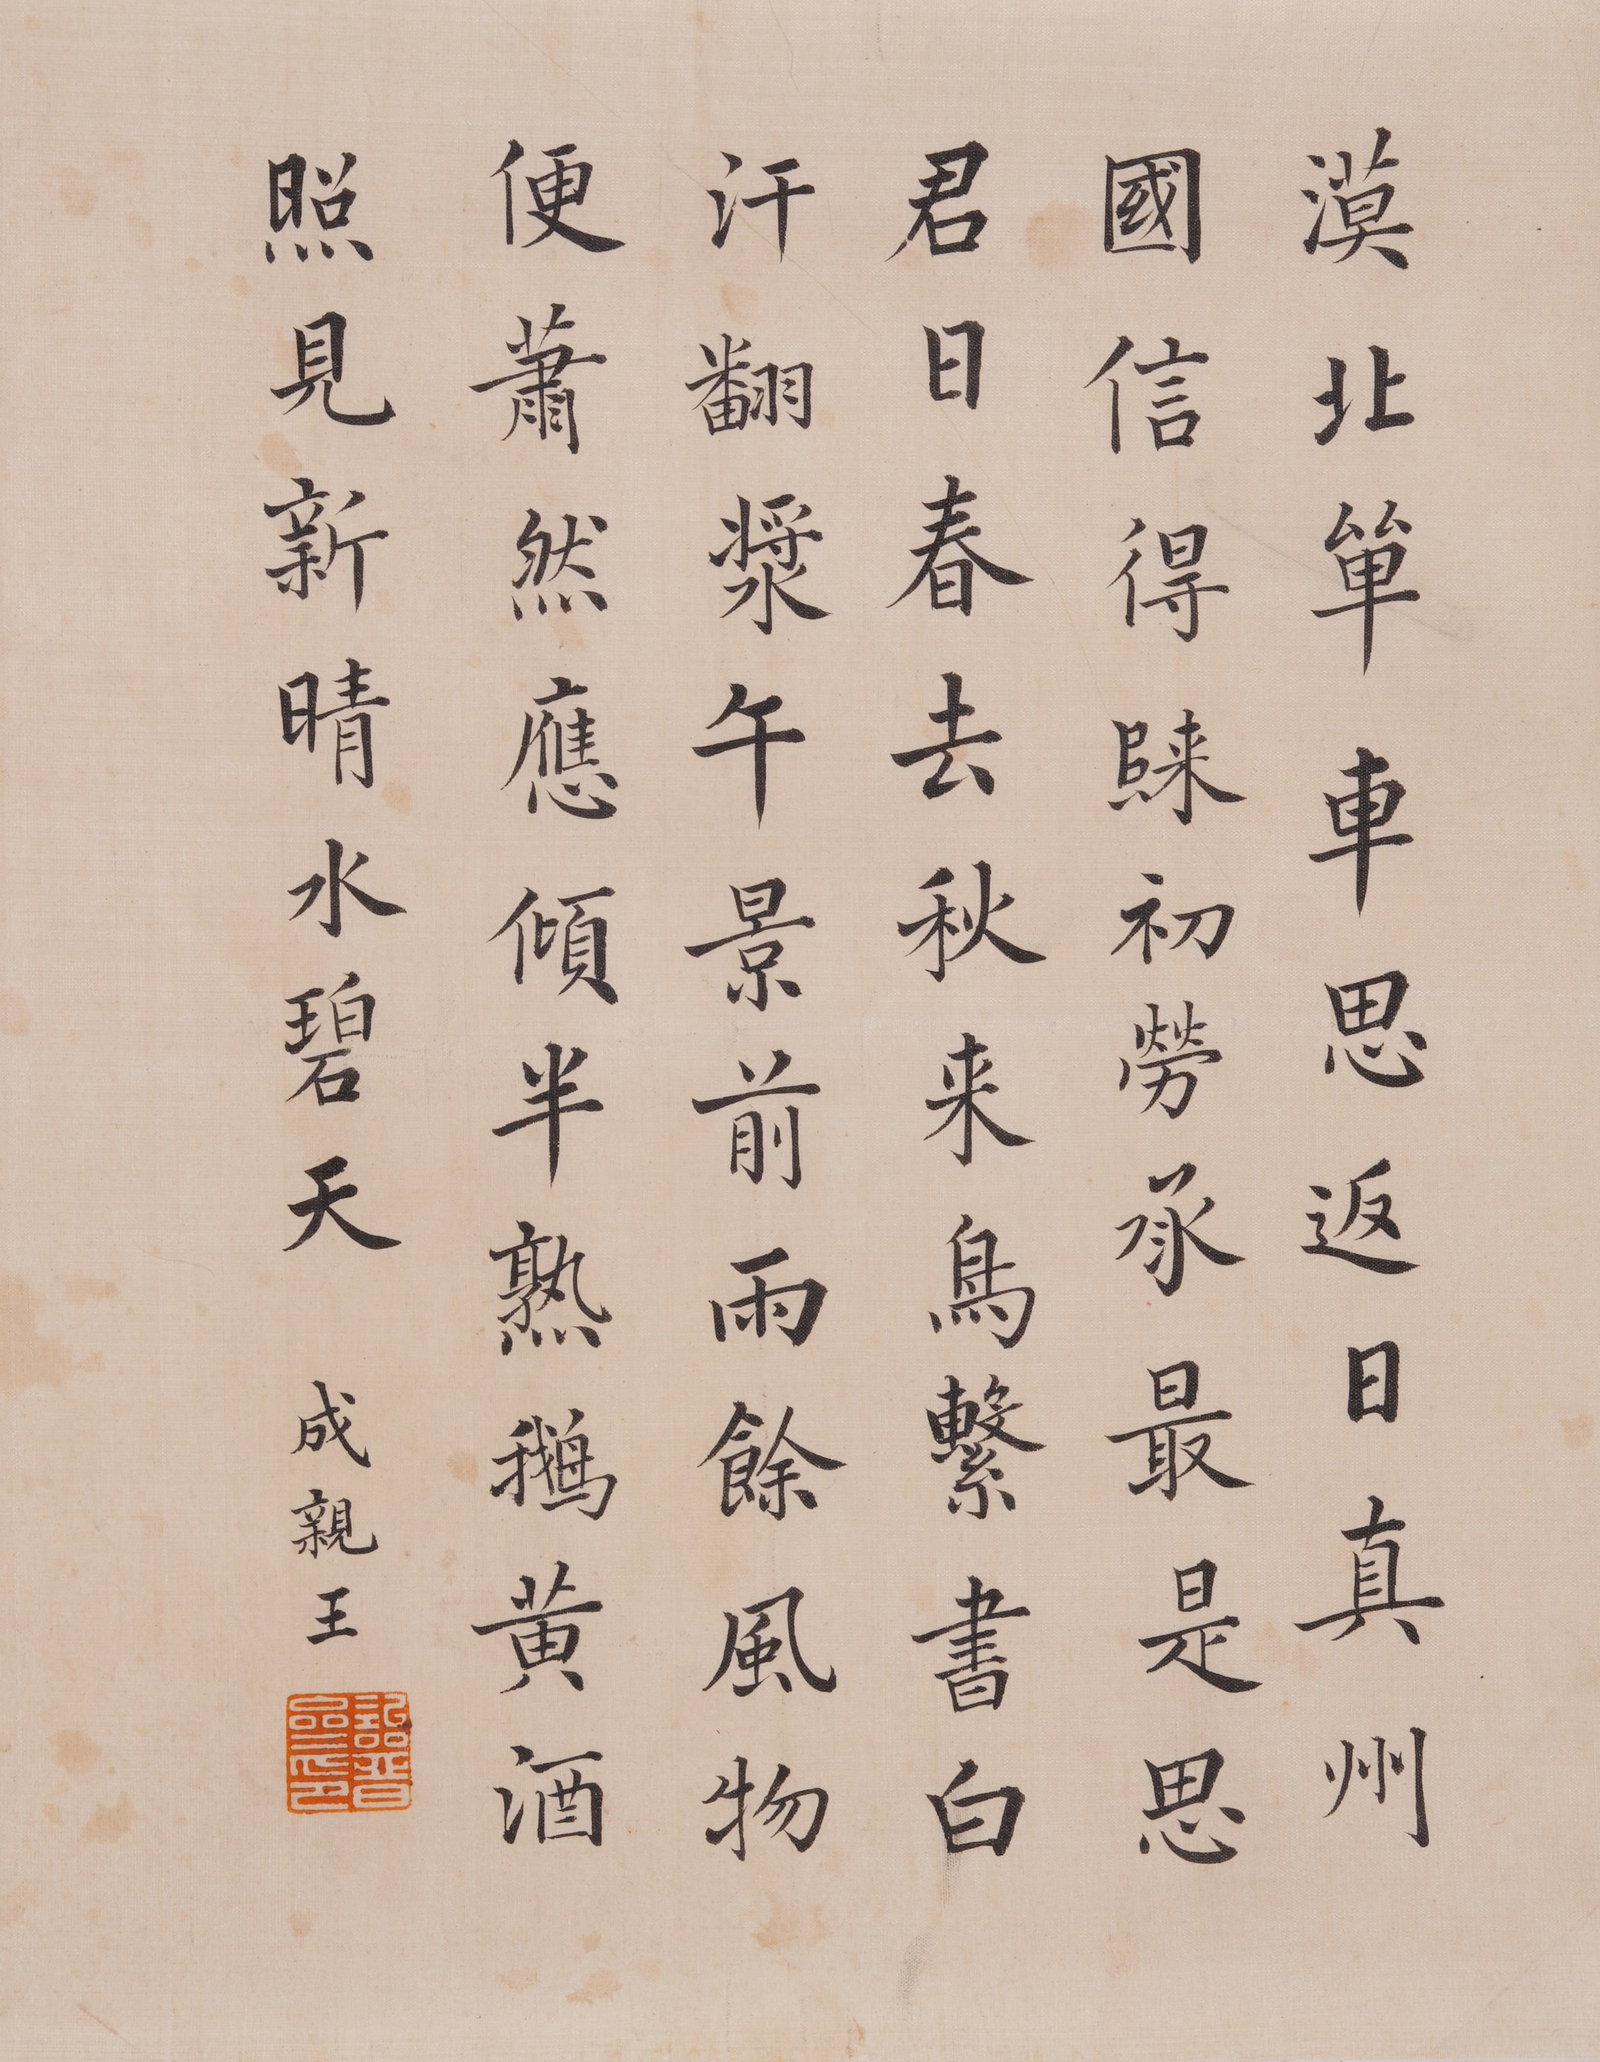 漠北單車思返日真州
國信得歸初勞承最是思
君日春去秋来鳥繫書白
汗翻漿午景前雨餘風物
便蕭然應傾半熟鵝黄酒
照見新晴水碧天
成親王
詒晉
齋印